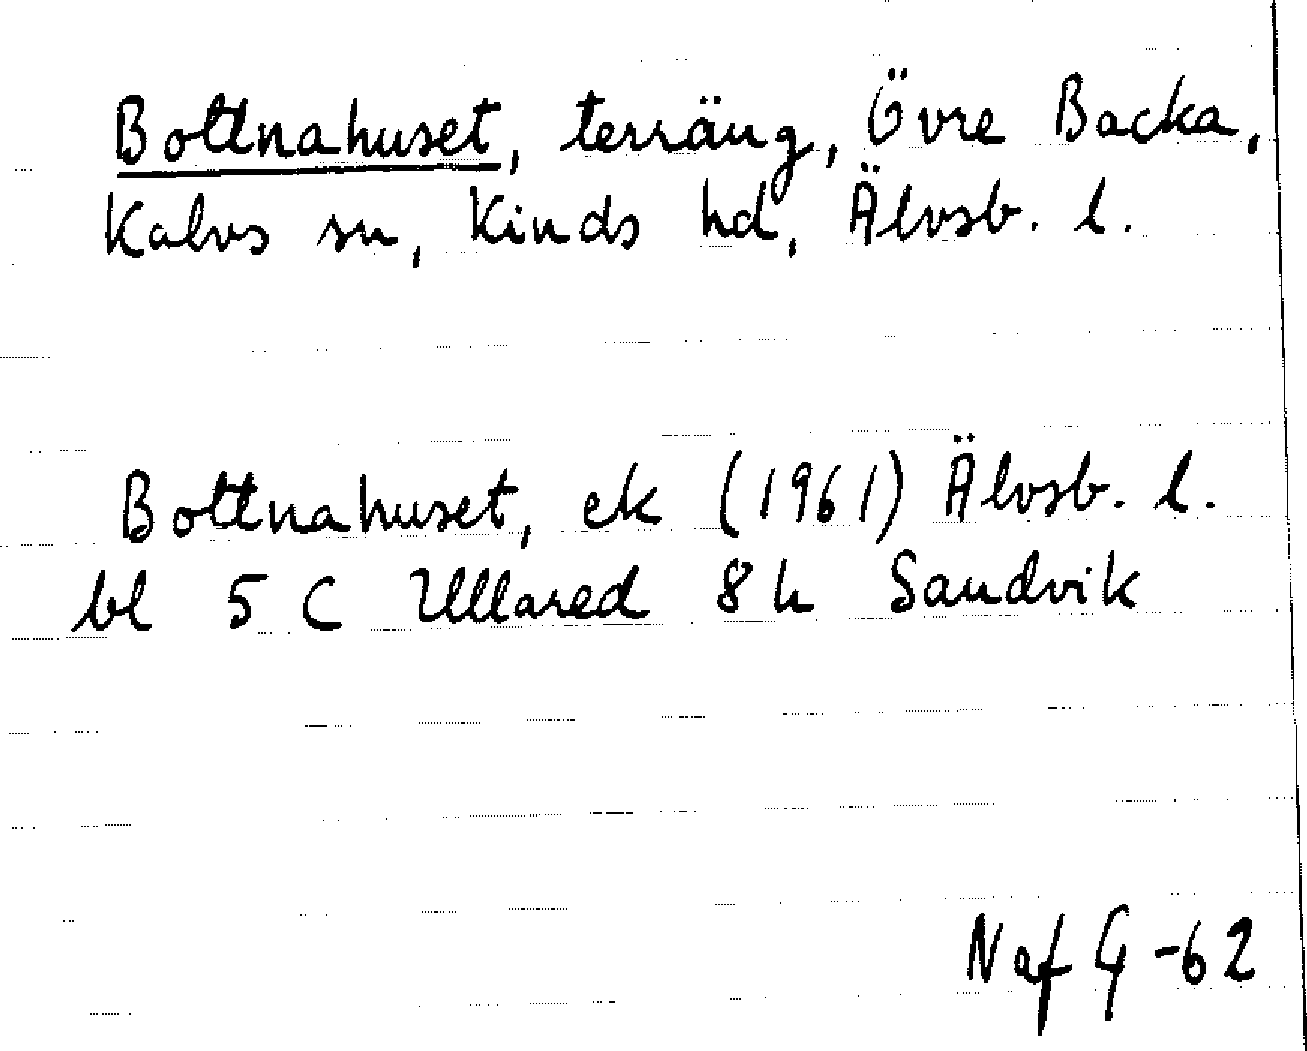 Bottnahuset, terräng, Övre Backa,
Kalvs sn, Kinds hd, Älvsb. l.
Bottnahuset, ek (1961) Älvsb. l.
bl 5 C Ullared 8 h Sandvik
Naf G -62